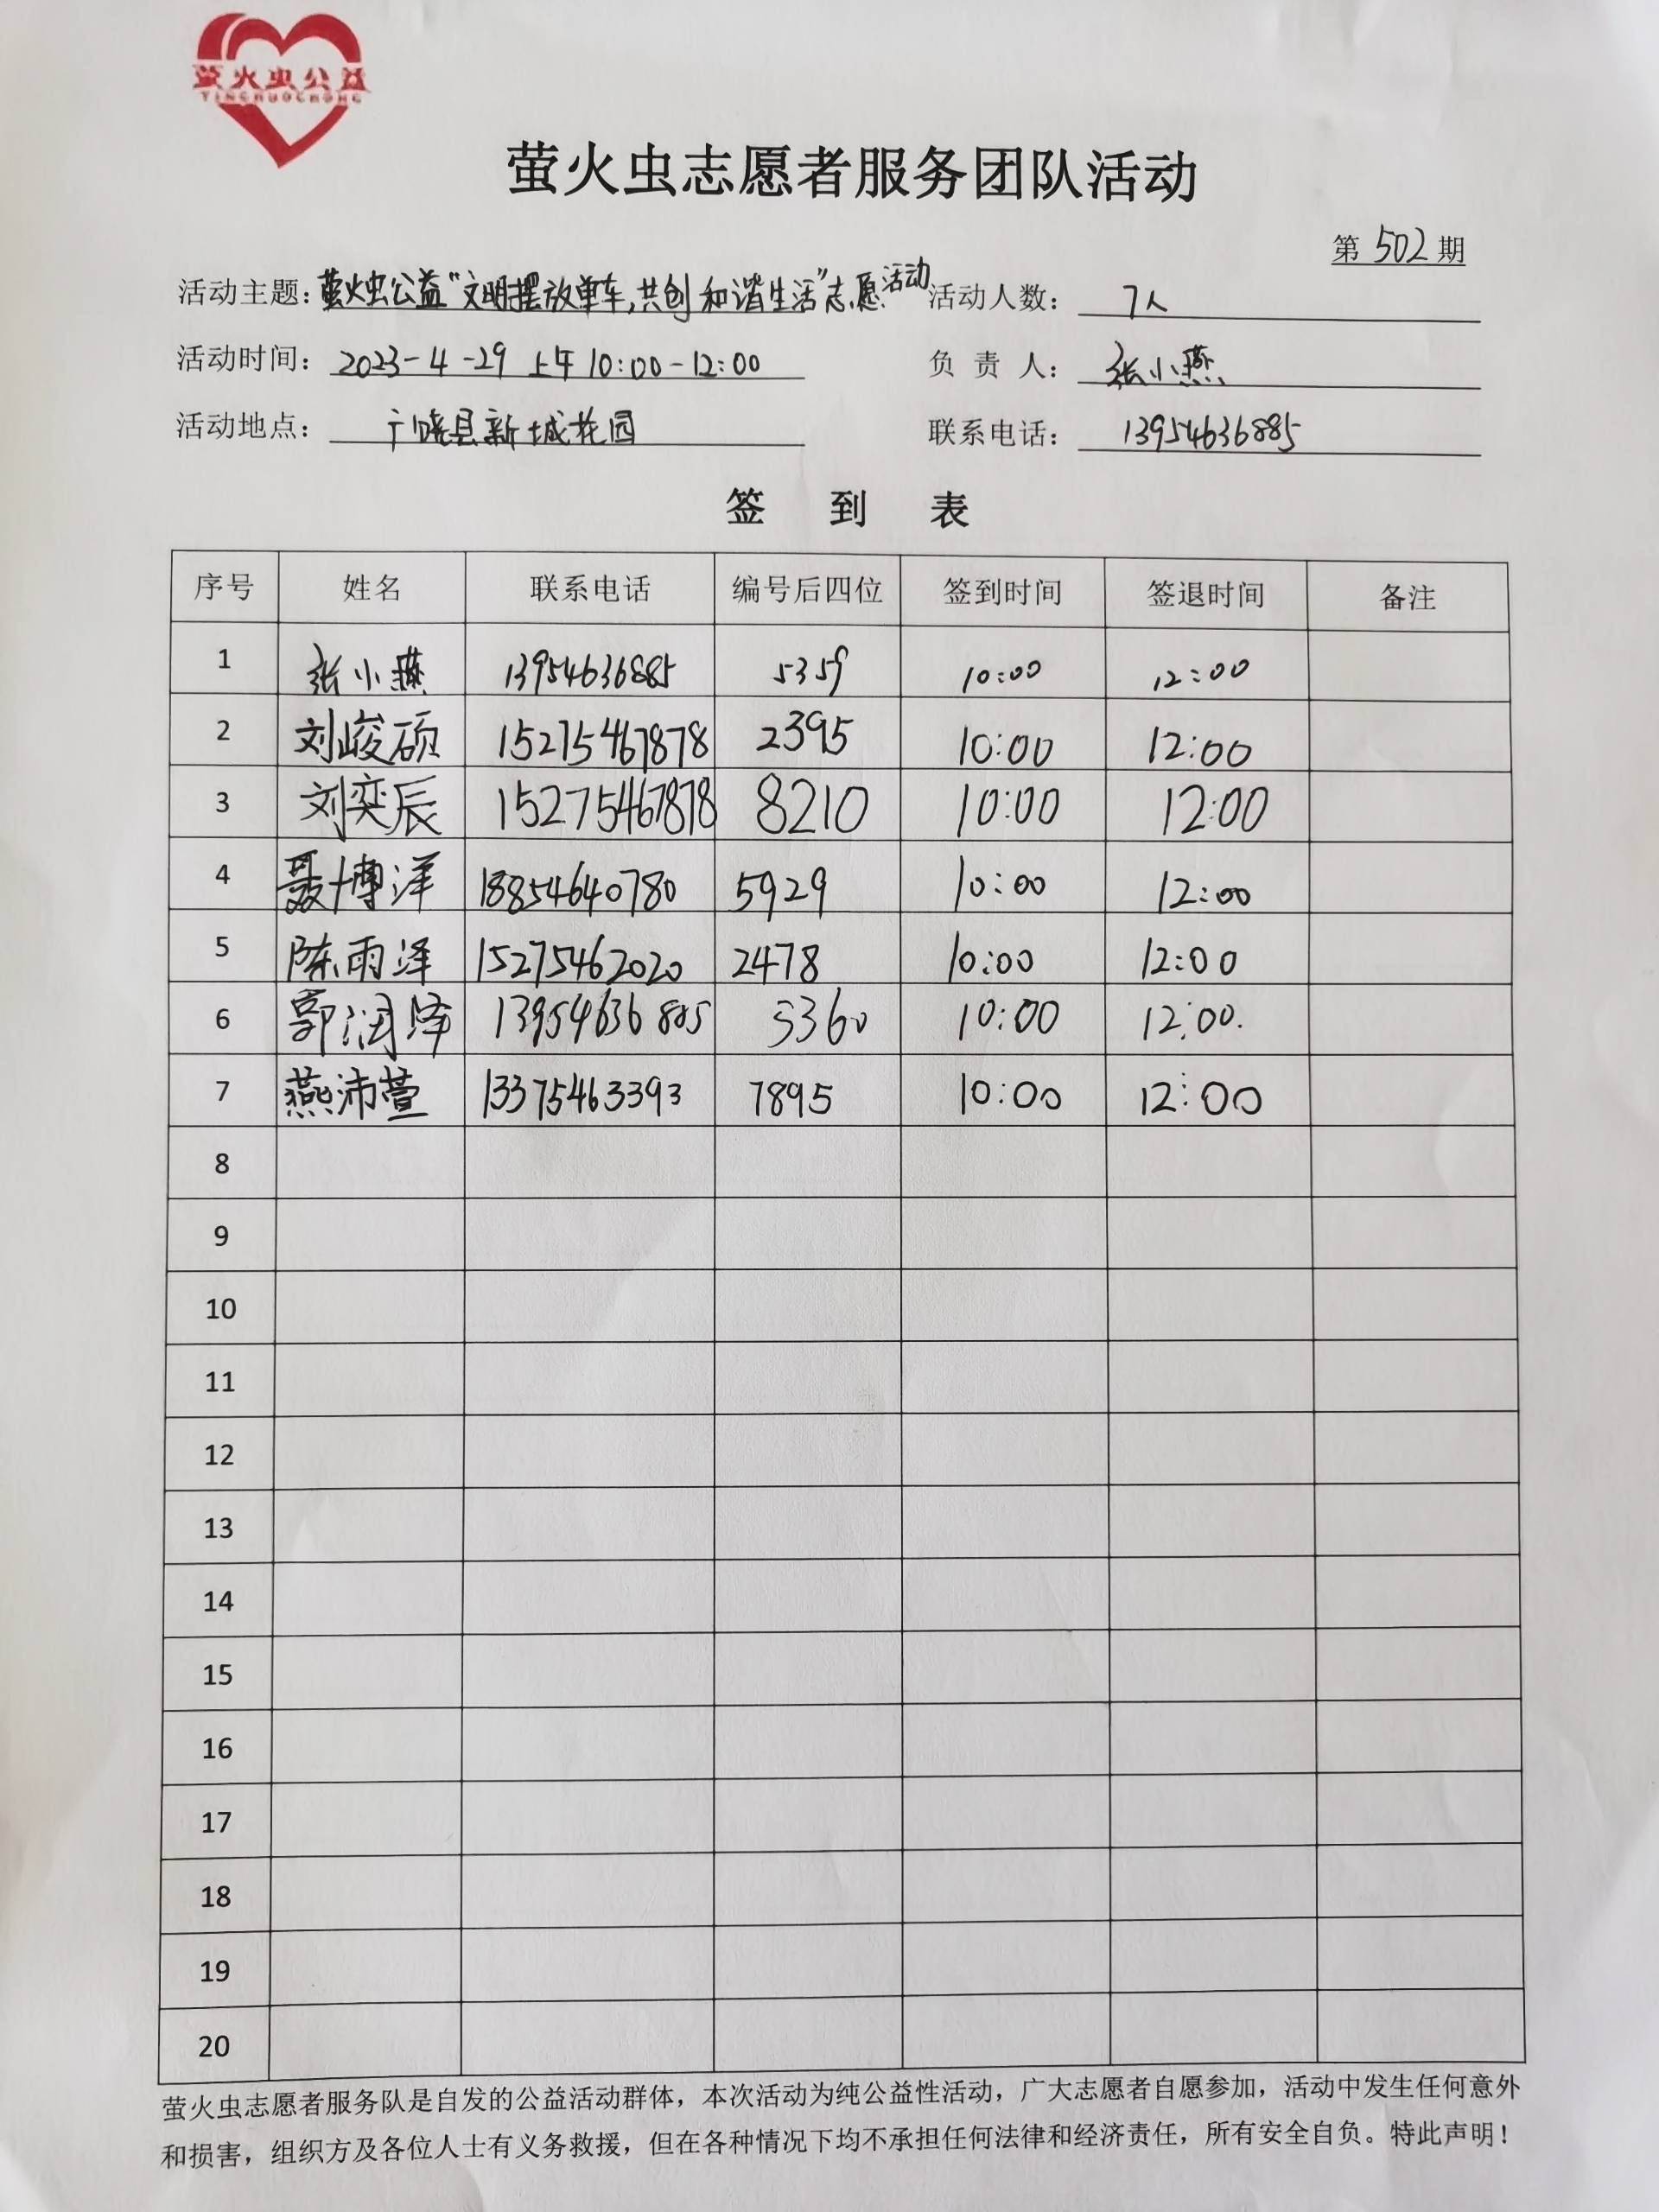 萤火虫公益
YINGHUOCHONG
萤火虫志愿者服务团队活动
第 502 期
活动主题: 萤火虫公益“文明摆放单车,共创和谐生活”志愿活动 活动人数: 7人
活动时间: 2023-4-29 上午 10:00-12:00 负责人: 张小燕
活动地点: 广饶县新城花园 联系电话: 13954636885
签到表
序号 姓名 联系电话 编号后四位 签到时间 签退时间 备注
1 张小燕 13954636885 5359 10:00 12:00
2 刘峻硕 15275467878 2395 10:00 12:00
3 刘奕辰 15275467878 8210 10:00 12:00
4 聂博洋 18854640780 5929 10:00 12:00
5 陈雨泽 15275462020 2478 10:00 12:00
6 郭润泽 13954636885 5360 10:00 12:00.
7 燕沛萱 13375463393 7895 10:00 12:00
8
9
10
11
12
13
14
15
16
17
18
19
20
萤火虫志愿者服务队是自发的公益活动群体，本次活动为纯公益性活动，广大志愿者自愿参加，活动中发生任何意外
和损害，组织方及各位人士有义务救援，但在各种情况下均不承担任何法律和经济责任，所有安全自负。特此声明！